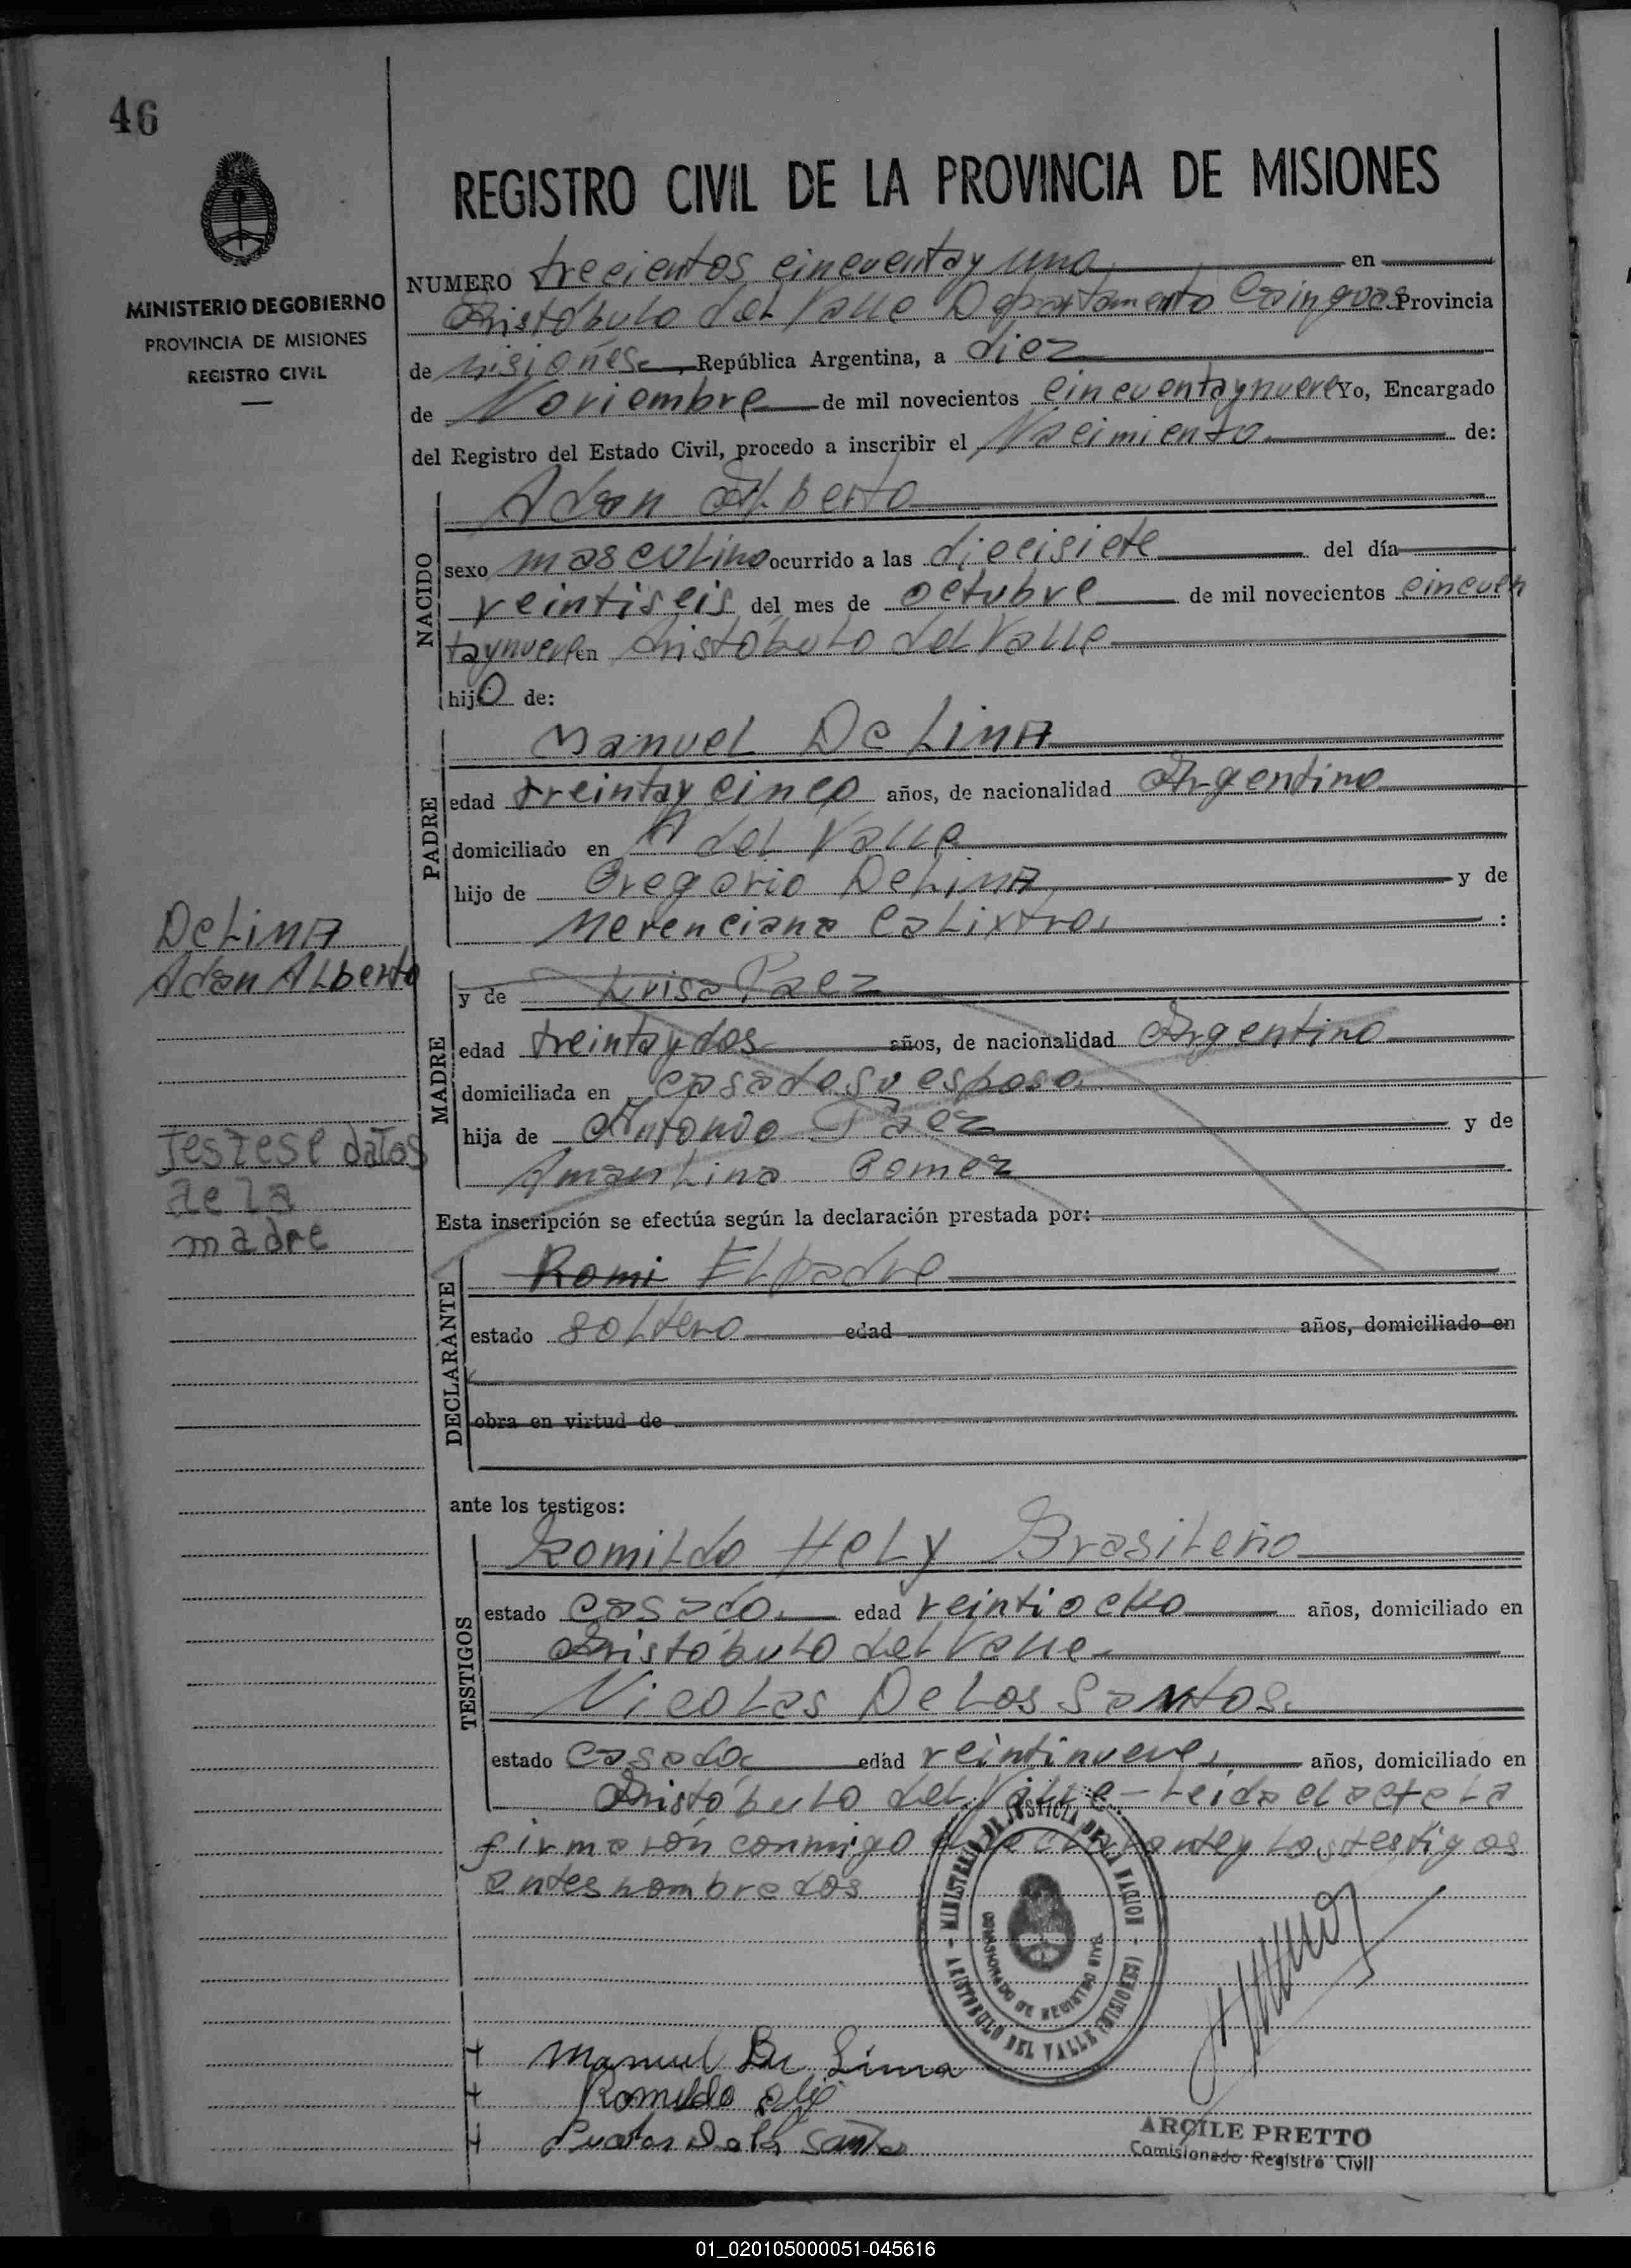 46
REGISTRO CIVIL DE LA PROVINCIA DE MISIONES
MINISTERIO DE GOBIERNO
PROVINCIA DE MISIONES
REGISTRO CIVIL
NUMERO trecientos cincuentay uno en
Aristóbulo del Valle Departamento Cainguas Provincia
de Misiones, República Argentina, a diez
de Noviembre de mil novecientos cincuentaynueve Yo, Encargado
del Registro del Estado Civil, procedo a inscribir el Nacimiento de:
NACIDO
Adan Alberto
sexo masculino ocurrido a las diecisiete del día
veintiseis del mes de octubre de mil novecientos cincuen
taynueve en Aristóbulo del Valle
hijo de:
PADRE
Manuel De Lima
edad treintay cinco años, de nacionalidad Argentino
domiciliado en A del Valle
hijo de Gregorio De Lima y de
Merenciana Calixtro :
De Lima
Adan Alberto
MADRE
y de Luisa Paez
edad treintaydos años, de nacionalidad Argentino
domiciliada en casa de su esposo
hija de Antonio Paez y de
Amantina Gomez
Testese datos
de la
madre
Esta inscripción se efectúa según la declaración prestada por:
DECLARANTE
Romi El padre
estado soltero edad años, domiciliado en
obra en virtud de
ante los testigos:
TESTIGOS
Romildo Hely Brasileño
estado casado edad veintiocho años, domiciliado en
Aristóbulo del Valle
Nicolas De Los Santos
estado casado edad veintinueve años, domiciliado en
Aristóbulo del Valle - Leida el acta la
firmarón conmigo el declarante y los testigos
antes nombrados
MINISTERIO DE JUSTICIA DE LA NACION
COMISIONADO DE REGISTRO CIVIL
ARISTOBULO DEL VALLE (MISIONES)
+ Manuel De Lima
+ Romildo
+ De los Santos
ARCILE PRETTO
Comisionado Registro Civil
01_020105000051-045616